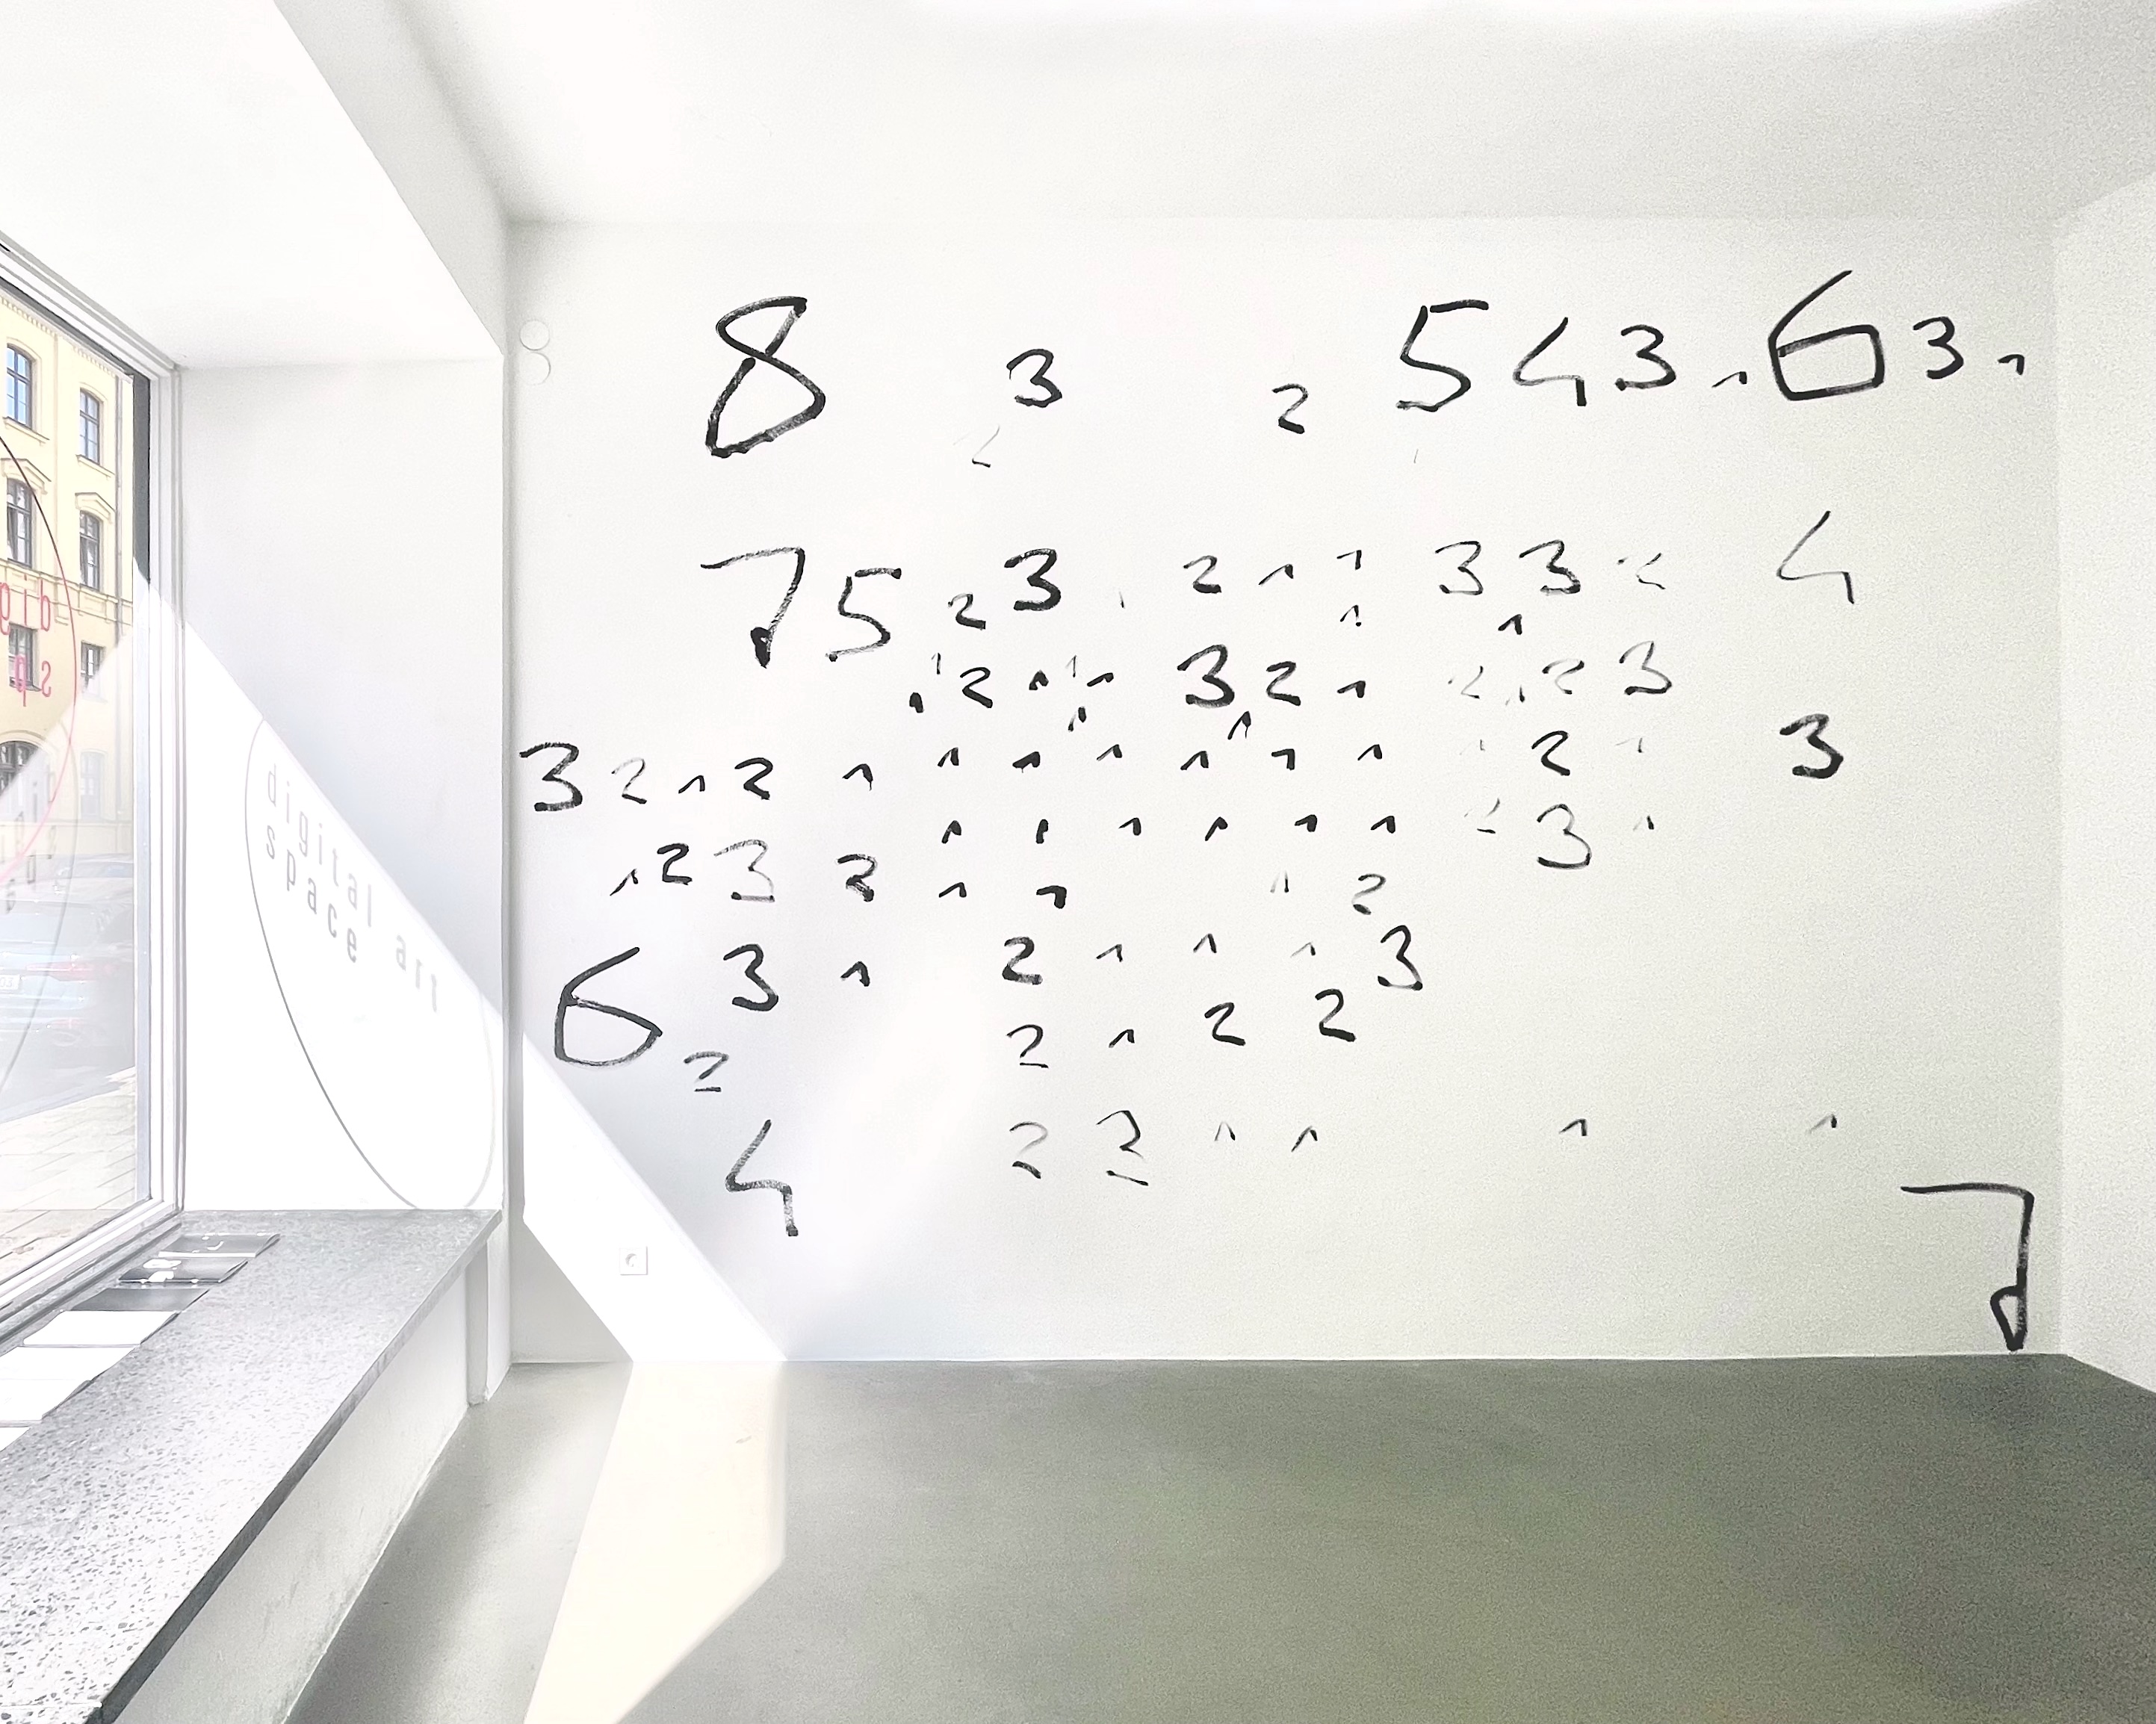 digital art
space
8 3 2 5 4 3 1 6 3 1
2
7 5 2 3 1 2 1 1 3 3 2 4
1 1
1 1 2 1 1 1 3 2 1 2 1 2 3
1 1
3 2 1 2 1 1 1 1 1 1 1 1 2 1 3
1 1 1 1 1 1 2 3 1
1 2 3 2 1 1 1 2
6 3 1 2 1 1 1 3
2 2 1 2 2
4 2 3 1 1 1 1
7